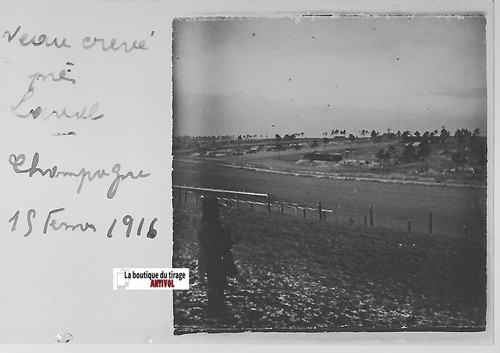 Veau crevé
près
Laval
Champagne
15 Février 1916
La boutique du tirage
ANTIVOL